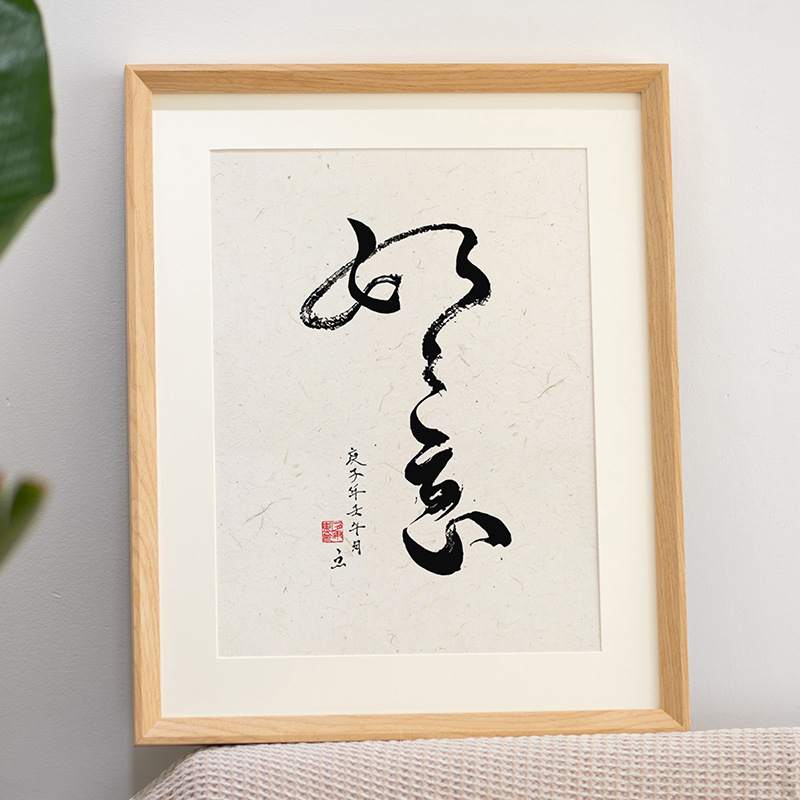 如意
庚子年壬午月